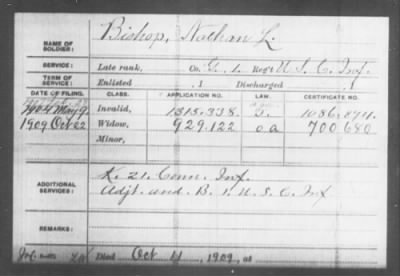 NAME OF SOLDIER: Bishop, Nathan L.
SERVICE: Late rank, Co. G, 1 Reg't U S C Inf.
TERM OF SERVICE: Enlisted , 1 Discharged , 1
DATE OF FILING. CLASS. APPLICATION NO. LAW. CERTIFICATE NO.
May 9 Invalid, 1315.338
1909 Oct 22 Widow, 929.122 o a 700680
Minor,
ADDITIONAL SERVICES: K. 21. Conn. Inf.
Adjt. and B. 1. U. S. C. Inf
REMARKS:
Died Oct 4, 1909, at